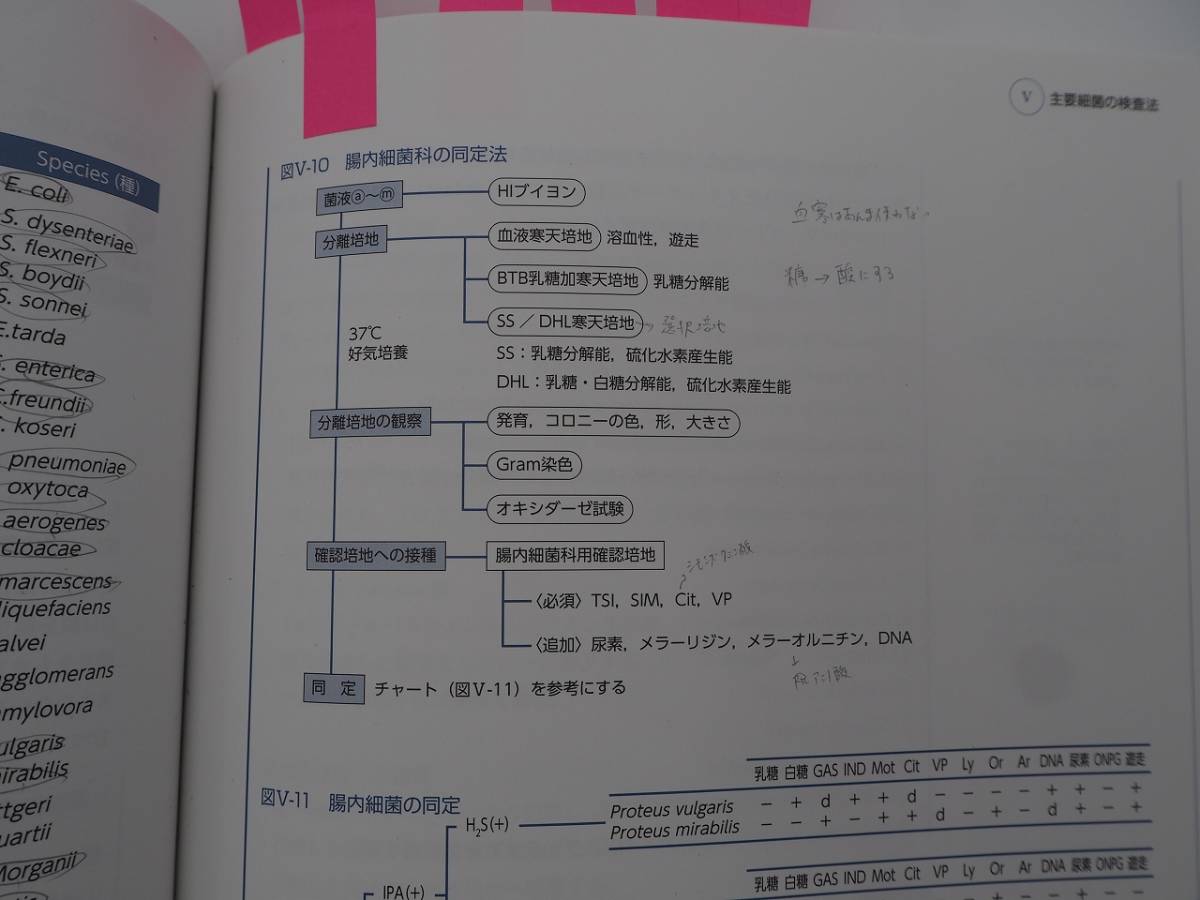 Species (種)
E. coli
S. dysenteriae
S. flexneri
S. boydii
S. sonnei
E.tarda
enterica
freundii
koseri
pneumoniae
oxytoca
aerogenes
cloacae
marcescens
liquefaciens
alvei
agglomerans
mylovora
ulgaris
mirabilis
ttgeri
uartii
Morganii
V 主要細菌の検査法
図V-10 腸内細菌科の同定法
菌液ⓐ〜ⓜ HIブイヨン
分離培地 血液寒天培地 溶血性，遊走
BTB乳糖加寒天培地 乳糖分解能
糖→酸にする
SS／DHL寒天培地 → 選択培地
37℃
好気培養
SS：乳糖分解能，硫化水素産生能
DHL：乳糖・白糖分解能，硫化水素産生能
分離培地の観察 発育，コロニーの色，形，大きさ
Gram染色
オキシダーゼ試験
確認培地への接種 腸内細菌科用確認培地
シモンズクエン酸
〈必須〉TSI，SIM，Cit，VP
〈追加〉尿素，メラーリジン，メラーオルニチン，DNA
同定 チャート（図V-11）を参考にする
図V-11 腸内細菌の同定
乳糖 白糖 GAS IND Mot Cit VP Ly Or Ar DNA 尿素 ONPG 遊走
H₂S(+) Proteus vulgaris − + d + + d − − − − + + − +
Proteus mirabilis − − + − + + d − + − d + − +
乳糖 白糖 GAS IND Mot Cit VP Ly Or Ar DNA 尿素 ONPG 遊走
IPA(+)